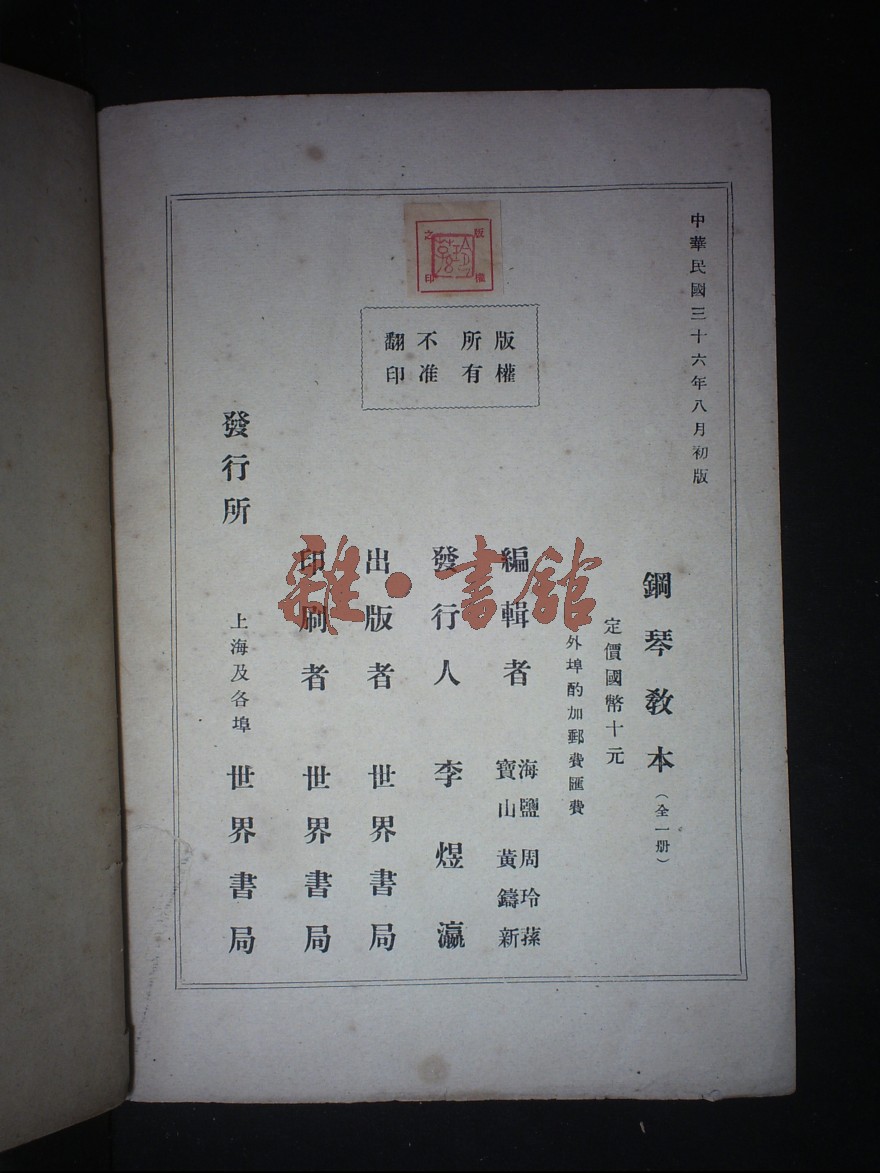 中華民國三十六年八月初版
鋼琴教本（全一册）
定價國幣十元
外埠酌加郵費匯費
編輯者 海鹽 周玲蓀
寶山 黃鑄新
發行人 李煜瀛
出版者 世界書局
印刷者 世界書局
發行所 上海及各埠 世界書局
版權
所有
不准
翻印
版權
之印
雜·書館